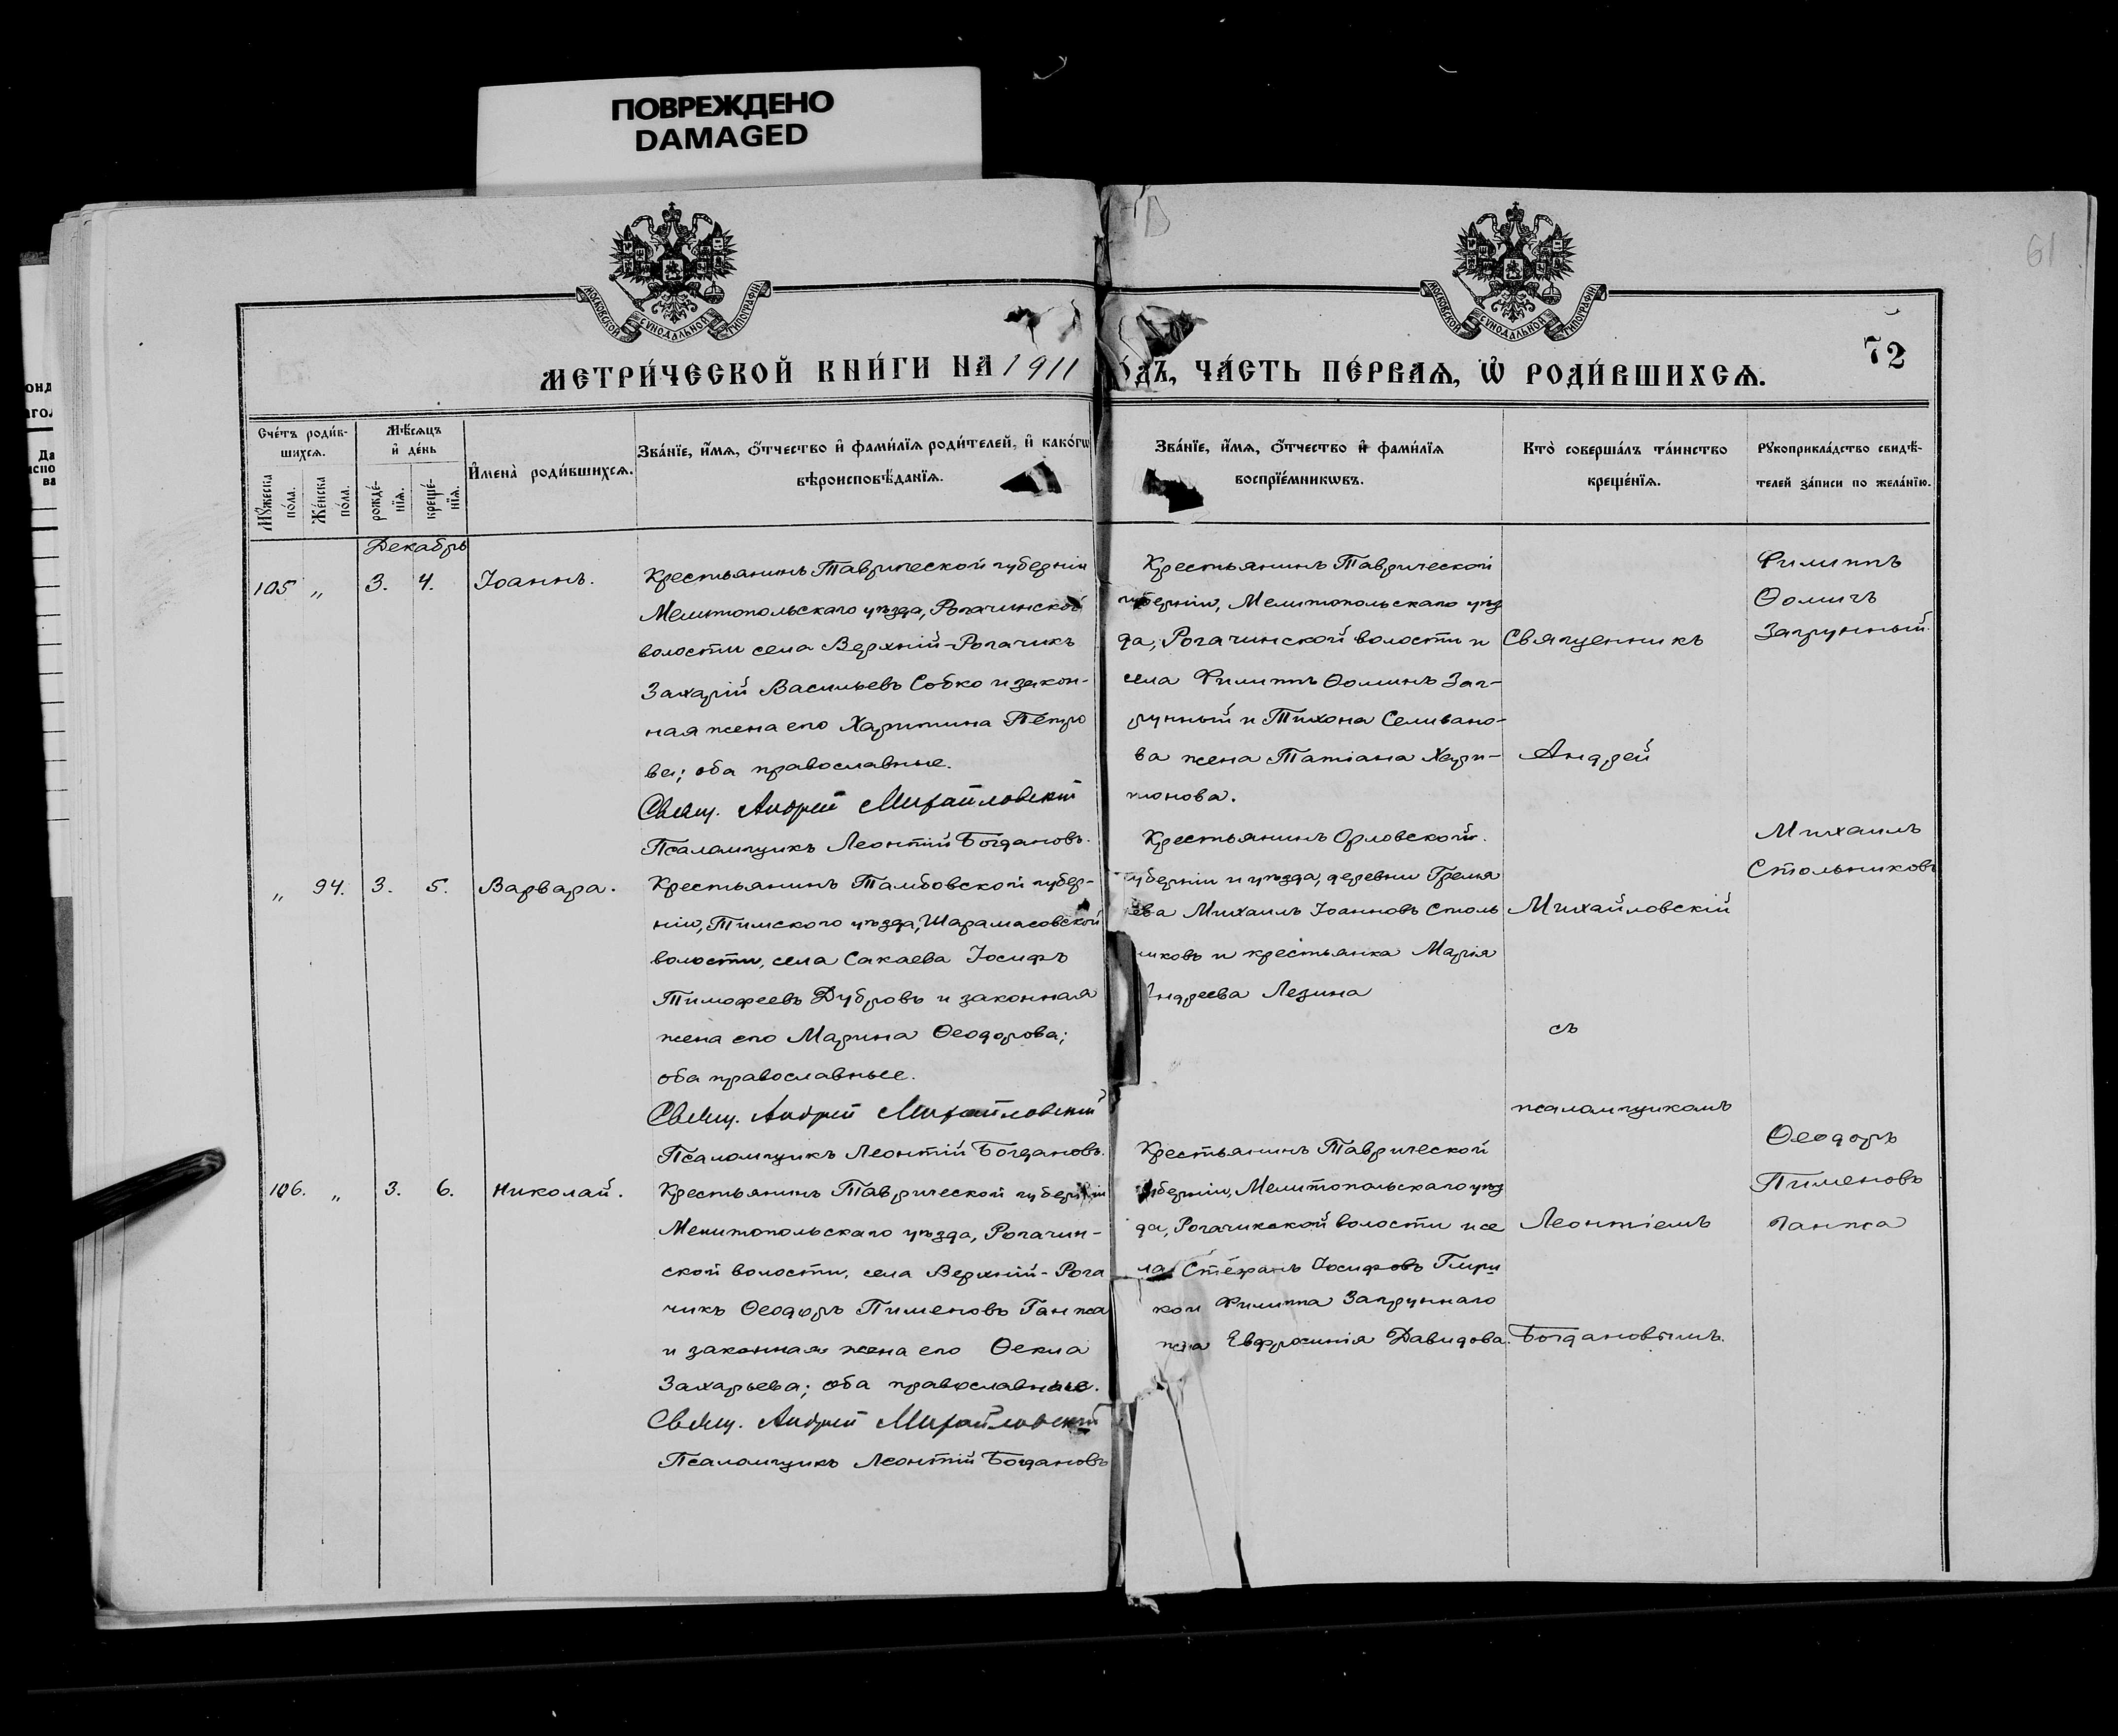 ПОВРЕЖДЕНО
DAMAGED
61
72
МОСКОВСКОЙ СѴНОДАЛЬНОЙ ТИПОГРАФІИ
МОСКОВСКОЙ СѴНОДАЛЬНОЙ ТИПОГРАФІИ
МЕТРИ́ЧЕСКОЙ КНИ́ГИ НА 1911
ОДЪ, ЧА́СТЬ ПЕ́РВАѦ, Ѡ РОДИ́ВШИХСѦ.
Сче́тъ роди́в-
шихсѧ.
Мꙋ́жеска по́ла.
Же́нска по́ла.
Мѣ́сѧцъ
и҆ де́нь
рожде́-
нїѧ.
креще́-
нїѧ.
И҆мена̀ роди́вшихсѧ.
Зва́нїе, и҆́мѧ, ѻ҆́тчество и҆ фами́лїѧ роди́телей, и҆ како́гѡ
вѣроисповѣ́данїѧ.
Зва́нїе, и҆́мѧ, ѻ҆́тчество и҆ фами́лїѧ
воспрїе́мникѡвъ.
Кто̀ соверша́лъ та́инство
креще́нїѧ.
Рꙋкоприкла́дство свидѣ́-
телей за́писи по жела́нїю.
Декабрь
105 „ 3. 4. Іоаннъ.
Крестьянинъ Таврической губерніи
Мелитопольскаго уѣзда, Рогачинской
волости села Верхній-Рогачикъ
Захарій Васильевъ Собко и закон-
ная жена его Харитина Петро
ва; оба православные.
Свящ. Андрей Михайловскій
Псаломщикъ Леонтій Богдановъ.
Крестьянинъ Таврической
губерніи, Мелитопольскаго уѣз
да, Рогачинской волости и
села Филиппъ Ѳоминъ Заг-
рунный и Тихона Селивано-
ва жена Татіана Хари-
тонова.
Филиппъ
Ѳомичъ
Загрунный.
„ 94. 3. 5. Варвара.
Крестьянинъ Тамбовской губер-
ніи, Тимского уѣзда, Шарамасовской
волости, села Сакаева Іосифъ
Тимофеевъ Дубровъ и законная
жена его Марина Ѳеодорова;
оба православные.
Свящ. Андрей Михайловскій
Псаломщикъ Леонтій Богдановъ.
Крестьянинъ Орловской
губерніи и уѣзда, деревни Гремя
ева Михаилъ Іоанновъ Столь
никовъ и крестьянка Марія
Андреева Лезина
Михаилъ
Стольниковъ
106. „ 3. 6. Николай.
Крестьянинъ Таврической губерніи
Мелитопольскаго уѣзда, Рогачин-
ской волости, села Верхній-Рога
чикъ Ѳеодоръ Пименовъ Ганжа
и законная жена его Ѳекла
Захарьева; оба православные.
Свящ. Андрей Михайловскій
Псаломщикъ Леонтій Богдановъ
Крестьянинъ Таврической
губерніи, Мелитопольскаго уѣз
да, Рогачикской волости и се
ла Стефанъ Іосифовъ
Филиппа Загруннаго
жена Евфросинія Давидова.
Ѳеодоръ
Пименовъ
Ганжа
Священникъ
Андрей
Михайловскій
съ
псаломщикомъ
Леонтіемъ
Богдановымъ.